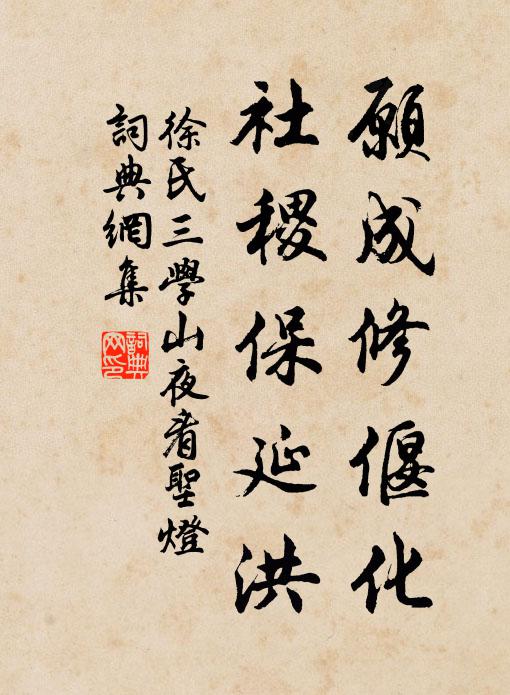 願成修偃化
社稷保延洪
徐氏三學山夜看聖燈
詞典網集
詞典网印